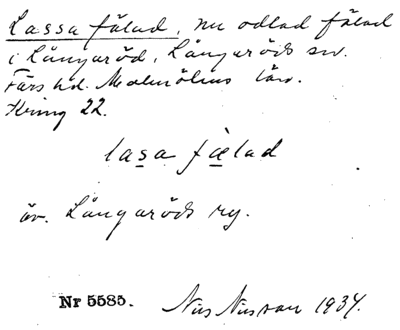 Lassa fälad, nu odlad fälad
i Långaröd, Långaröds sn.
Färs hd. Malmöhus län.
Kring 22.
lasa fælad
äv. Långaröds ry.
Nr 5585.
Nils Nilsson 1934.